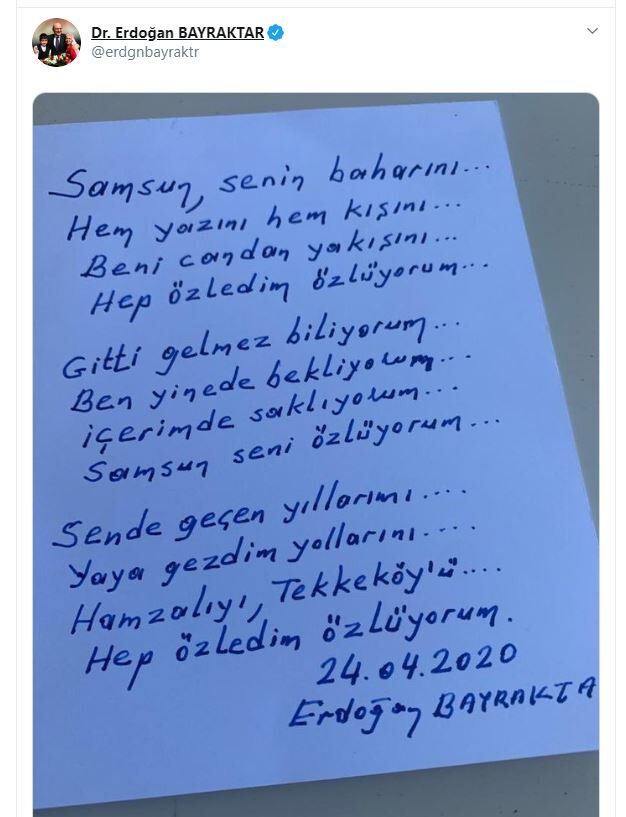 Dr. Erdoğan BAYRAKTAR
@erdgnbayraktr
Samsun, senin baharını...
Hem yazını hem kışını...
Beni candan yakışını...
Hep özledim özlüyorum...
Gitti gelmez biliyorum...
Ben yinede bekliyorum...
içerimde saklıyorum...
Samsun seni özlüyorum...
Sende geçen yıllarımı....
Yaya gezdim yollarını....
Hamzalıyı, Tekkeköy'ü....
Hep özledim özlüyorum.
24.04.2020
Erdoğan BAYRAKTA